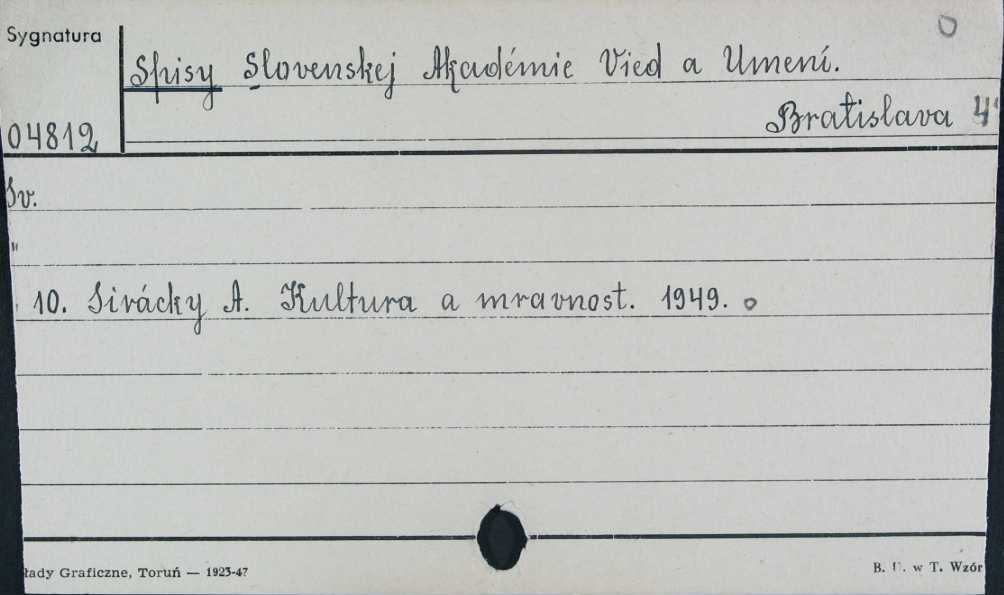 Sygnatura
Spisy Slovenskej Akadémie Vied a Umení.
Bratislava 4°
04812
Sv.
"
10. Sirácky A. Kultura a mravnost. 1949. o
łady Graficzne, Toruń — 1923-47
B. U. w T. Wzór